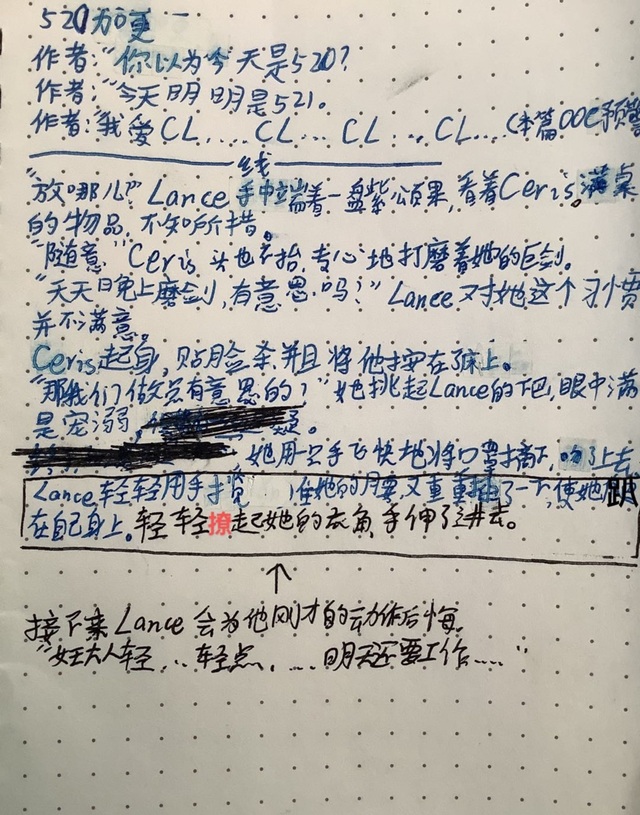 520加更
作者:"你以为今天是520?
作者:"今天明明是521。
作者:"我爱CL....CL...CL...CL...(本篇OOC预警
线
"放哪儿?"Lance手中端着一盘紫颂果,看着Ceris满桌
的物品,不知所措。
"随意."Ceris头也不抬,专心地打磨着她的巨剑。
"天天晚上磨剑,有意思吗?"Lance对她这个习惯
并不满意。
Ceris起身,贴脸杀并且将他按在了床上。
"那我们做点有意思的?"她挑起Lance的下巴,眼中满
是宠溺, 疑。
她用一只手飞快地将口罩摘下,吻了上去
Lance轻轻用手 住她的腰,又重重 了一下,使她 趴
在自己身上。轻轻撩起她的衣角,手伸了进去。
↑
接下来Lance会为他刚才的动作后悔。
"女王大人轻...轻点....明天还要工作...."